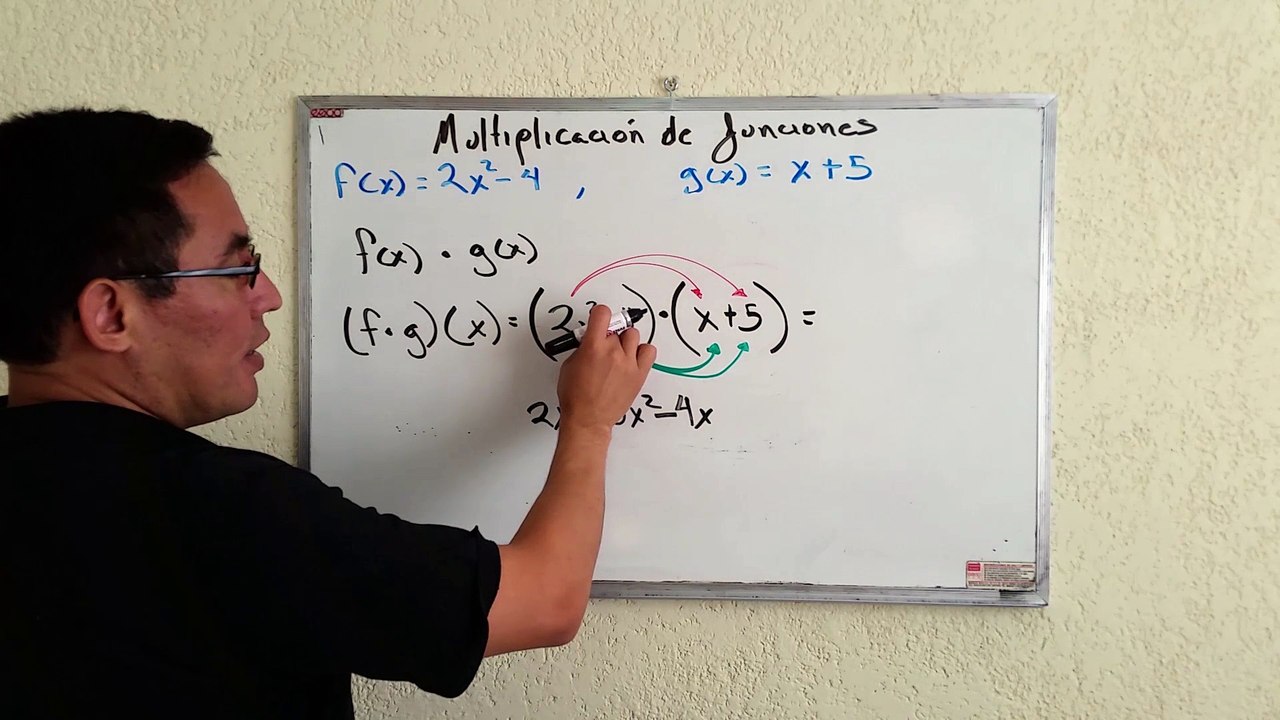 Multiplicación de funciones
f(x) = 2x² - 4 , g(x) = x + 5
f(x) · g(x)
(f · g)(x) = (2 ²) · (x + 5) =
2x x² - 4x